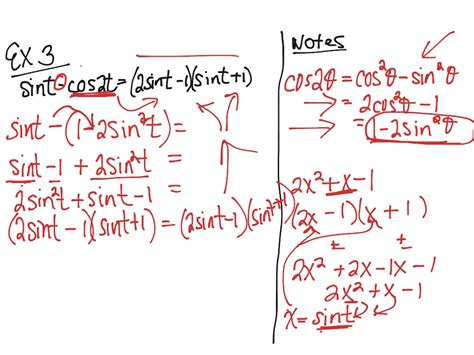 Ex. 3
sint - cos2t = (2sint -1)(sint +1)
sint - (1-2sin²t) =
sint -1 + 2sin²t =
2sin²t + sint -1 =
(2sint -1)(sint +1) = (2sint -1)(sint +1)
Notes
cos2θ = cos²θ - sin²θ
= 2cos²θ - 1
= 1-2sin²θ
2x² + x - 1
(2x -1)(x + 1)
± ±
2x² + 2x - 1x - 1
2x² + x - 1
x = sint